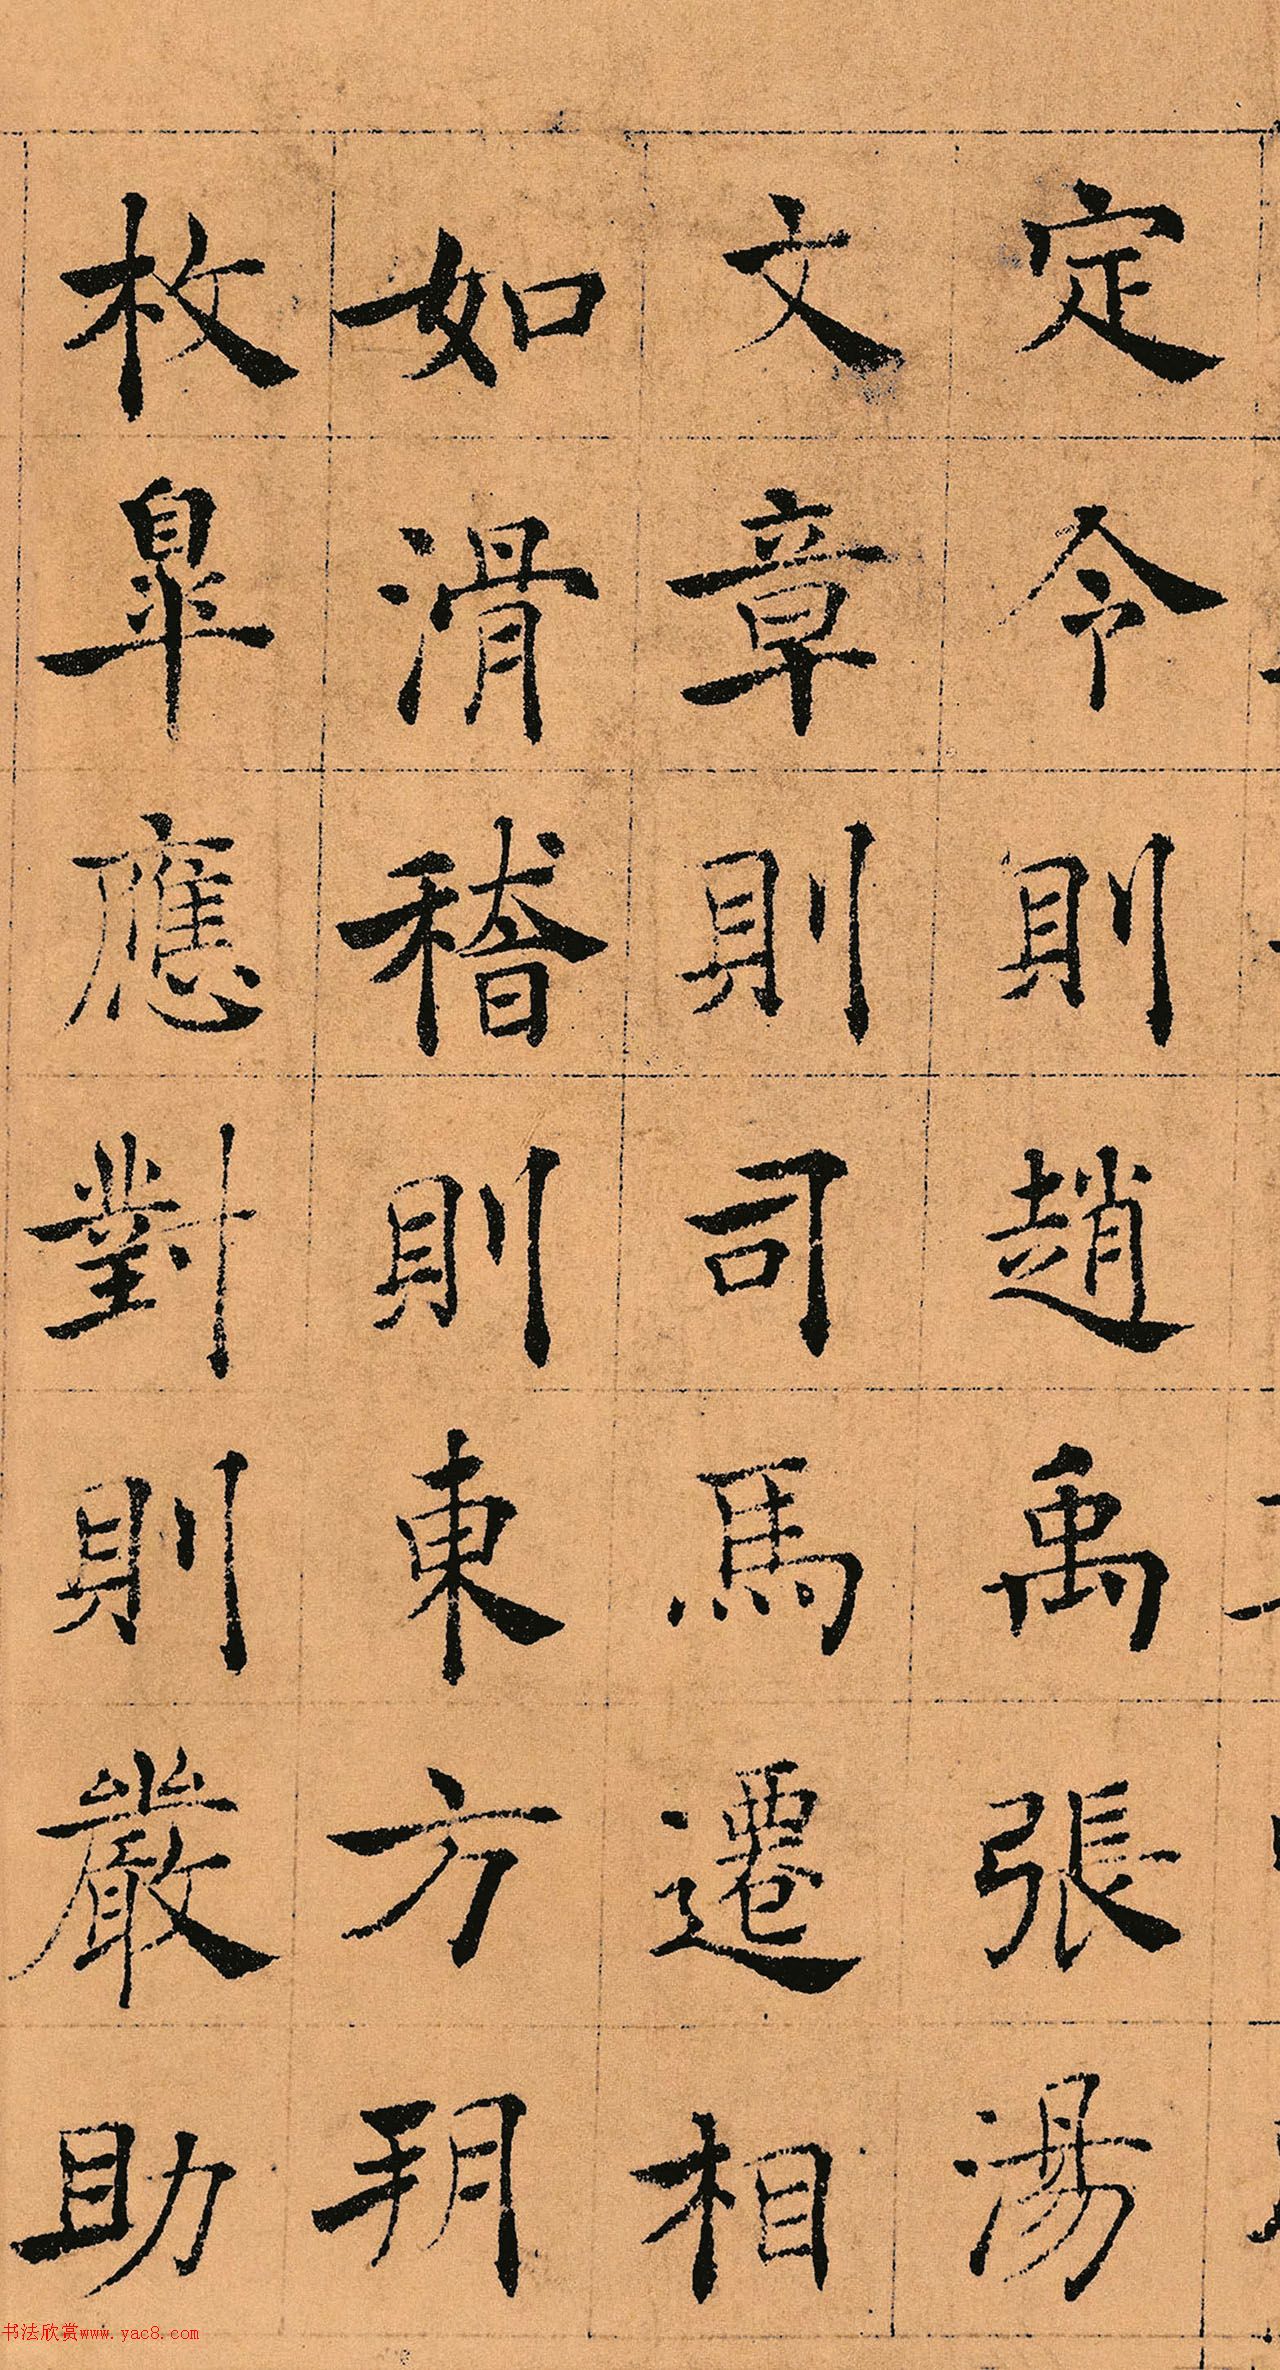 定令則趙禹張湯
文章則司馬遷相
如滑稽則東方朔
枚皋應對則嚴助
书法欣赏www.yac8.com